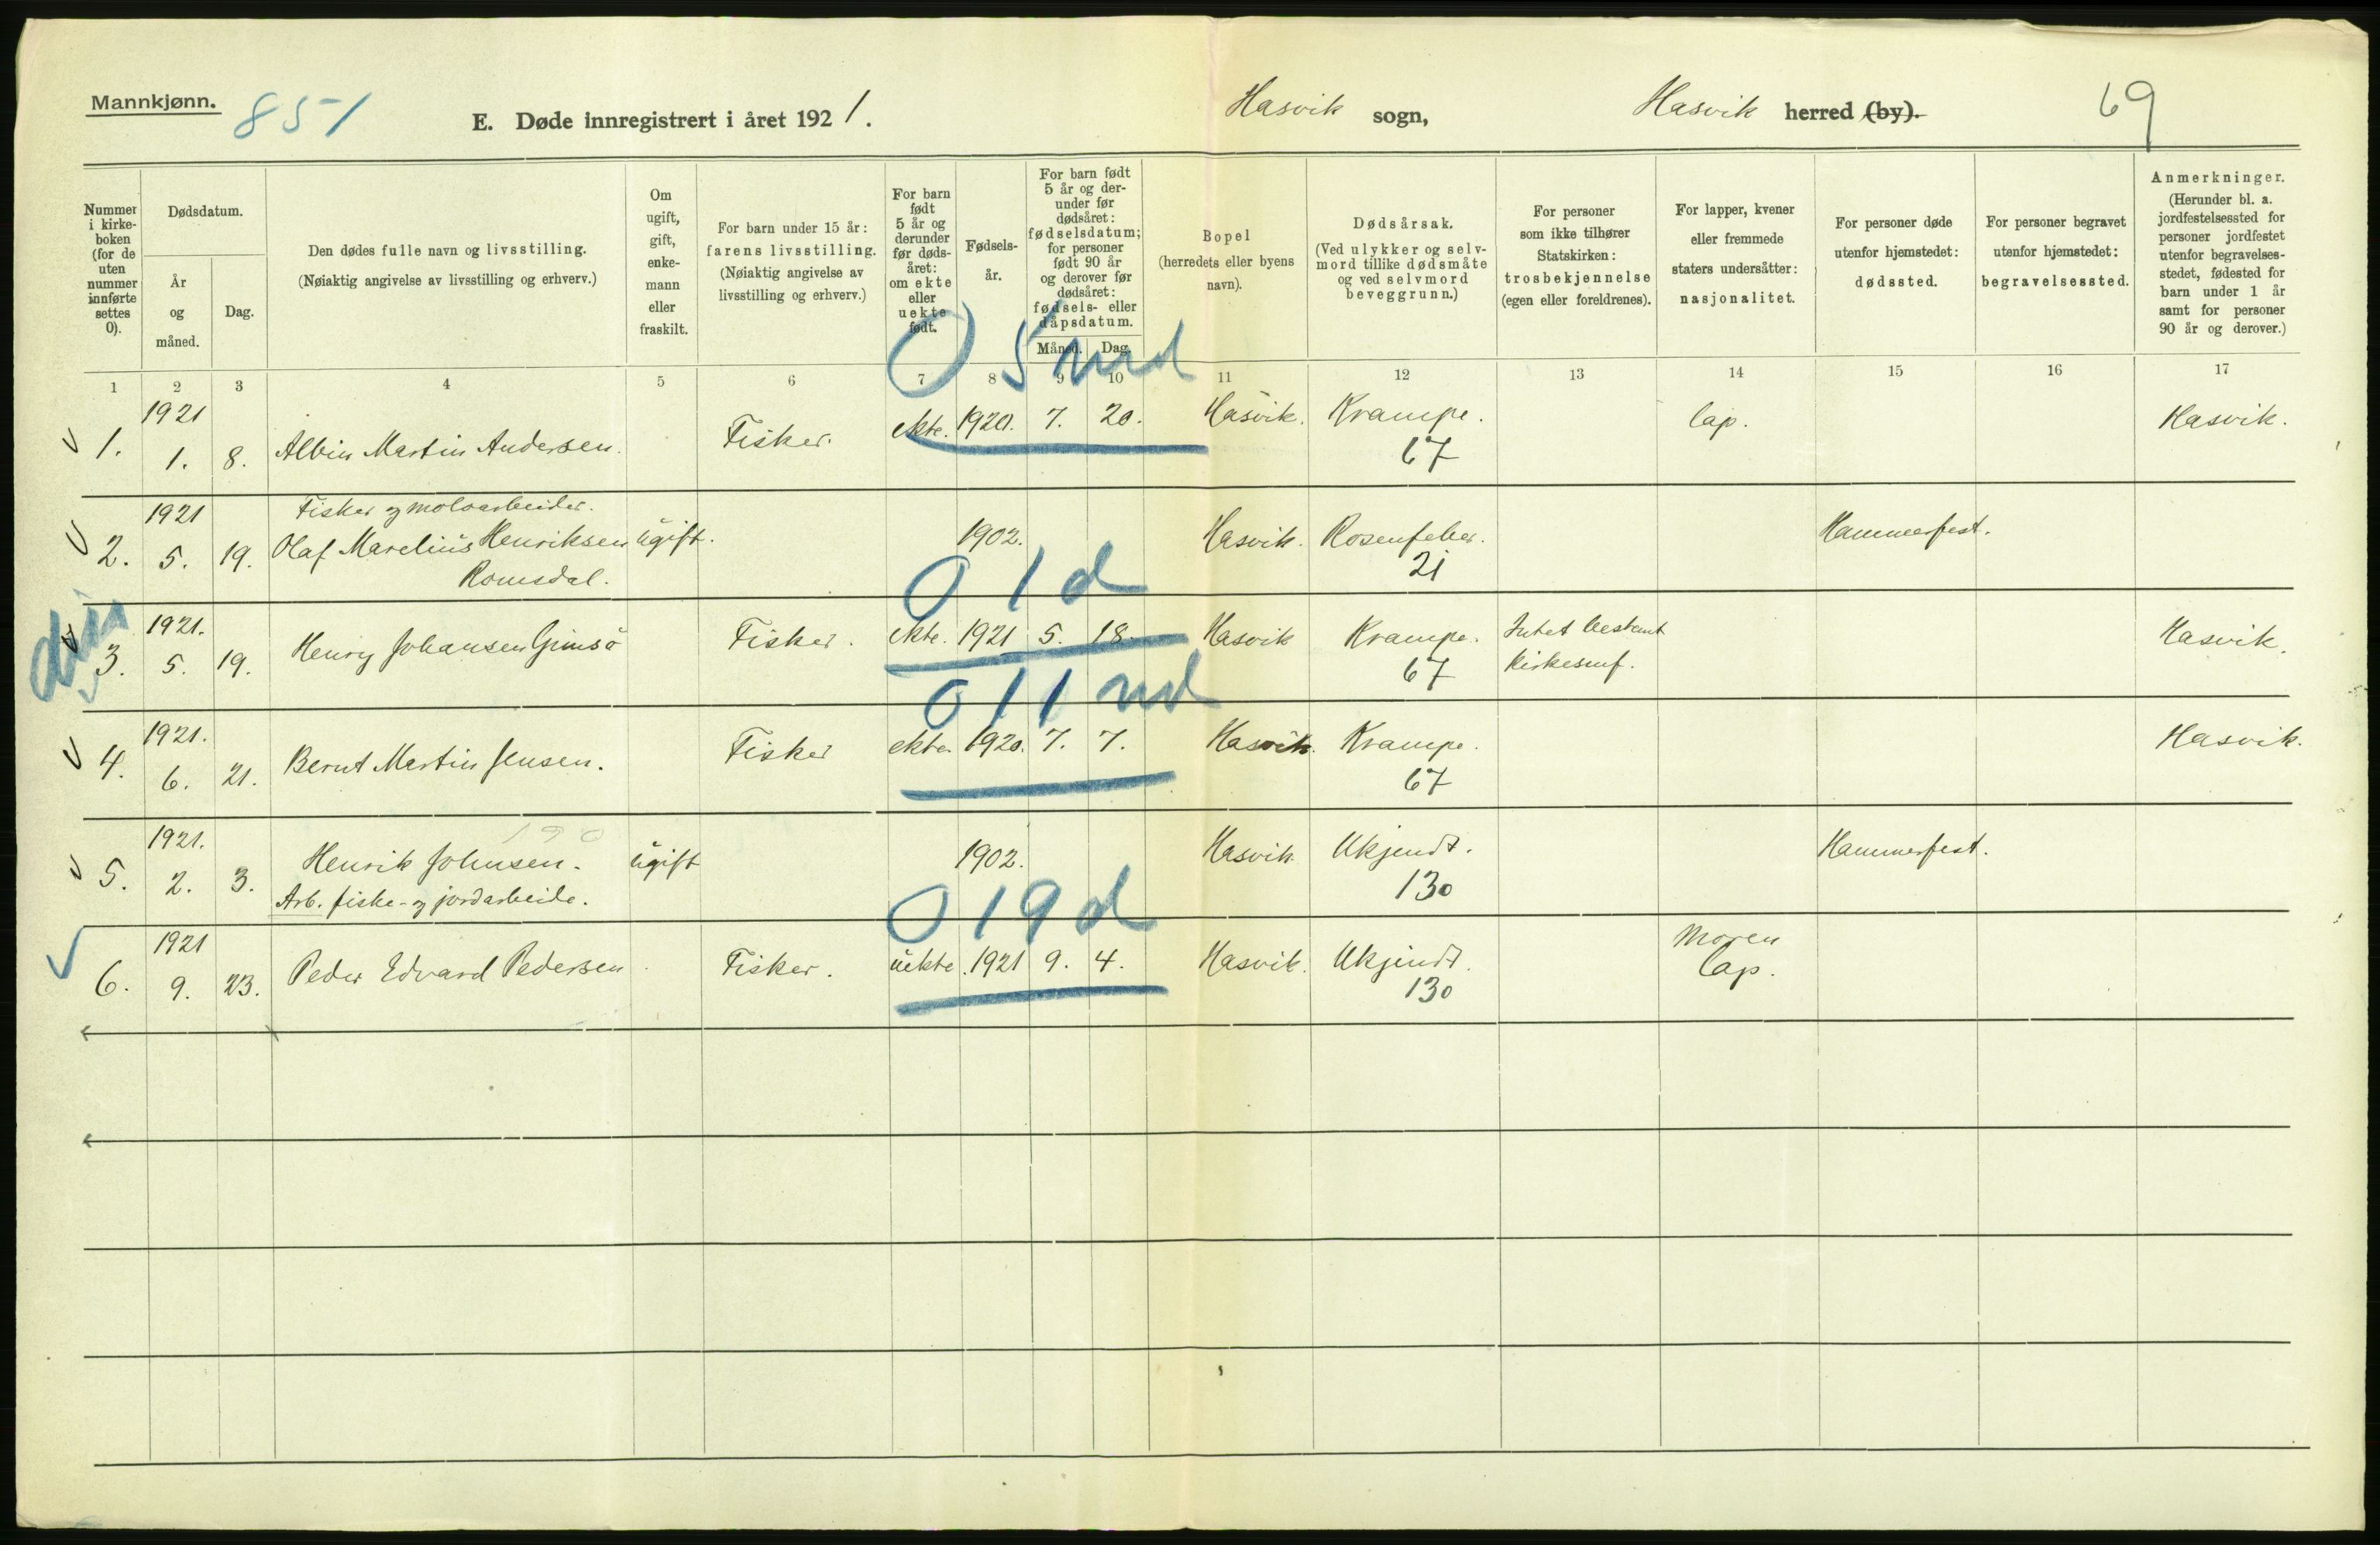 Mannkjønn.
851
E. Døde innregistrert i året 1921.
Hasvik sogn,
Hasvik herred (by).
69
Nummer i kirke- boken (for de uten nummer innførte settes 0).
Dødsdatum.
År og måned.
Dag.
Den dødes fulle navn og livsstilling.
(Nøiaktig angivelse av livsstilling og erhverv.)
Om ugift, gift, enke- mann eller fraskilt.
For barn under 15 år: farens livsstilling.
(Nøiaktig angivelse av livsstilling og erhverv.)
For barn født 5 år og derunder før døds- året: om ekte eller uekte født.
Fødsels- år.
For barn født 5 år og der- under før dødsåret: fødselsdatum; for personer født 90 år og derover før dødsåret: fødsels- eller dåpsdatum.
Måned. Dag.
Bopel
(herredets eller byens navn).
Dødsårsak.
(Ved ulykker og selv- mord tillike dødsmåte og ved selvmord beveggrunn.)
For personer som ikke tilhører Statskirken: trosbekjennelse (egen eller foreldrenes).
For lapper, kvener eller fremmede staters undersåtter: nasjonalitet.
For personer døde utenfor hjemstedet: dødssted.
For personer begravet utenfor hjemstedet: begravelsessted.
Anmerkninger.
(Herunder bl. a. jordfestelsessted for personer jordfestet utenfor begravelses- stedet, fødested for barn under 1 år samt for personer 90 år og derover.)
1 2 3 4 5 6 7 8 9 10 11 12 13 14 15 16 17
0 5 md
1. 1921 1. 8. Albin Martin Andersen. Fisker. ekte. 1920. 7. 20. Hasvik. Krampe. 67 lap. Hasvik.
Fisker og
2. 1921 5. 19. Olaf Marelius Henriksen Romsdal. ugift. 1902. Hasvik. Rosenfeber. 21 Hammerfest.
0 1 d
3. 1921. 5. 19. Henry Johansen Fisker. ekte. 1921 5. 18. Hasvik Krampe. 67 Intet bestemt Hasvik.
0 11 md
4. 1921. 6. 21. Bernt Martin Jensen. Fisker ekte. 1920. 7. 7. Hasvik. Krampe. 67 Hasvik.
5. 1921. 2. 3. Henrik Johnsen. ugift 1902. Hasvik Ukjendt. 130 Hammerfest.
Arb. fiske- og jordarbeide.
0 19 d
6. 1921 9. 23. Peder Edvard Pedersen. Fisker. uekte. 1921 9. 4. Hasvik. Ukjendt. 130 Moren lap.